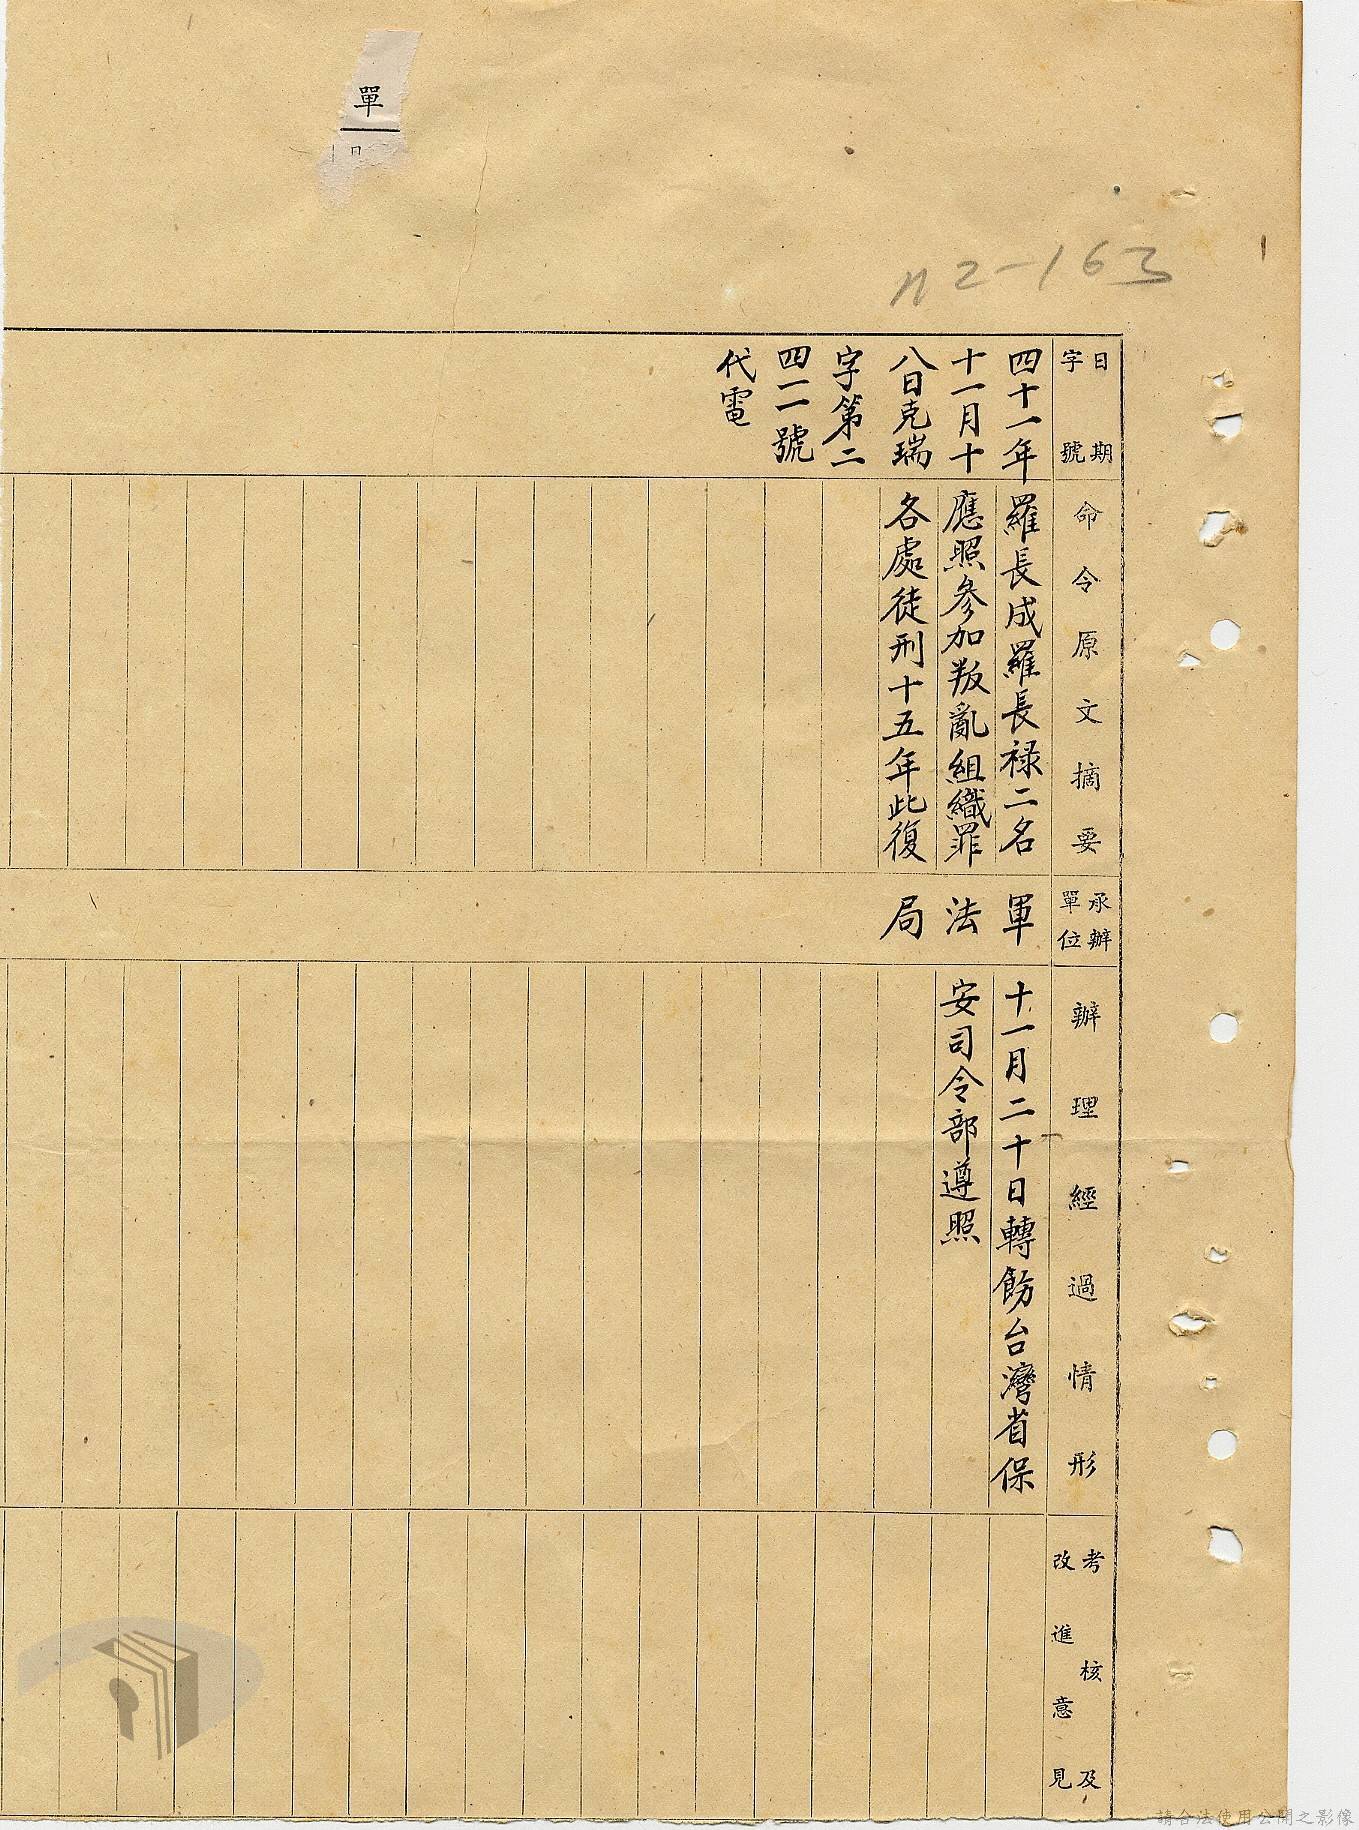 單
日
112-163
日期
字號
四十一年
十一月十
八日克瑞
字第二
四一一號
代電
命令原文摘要
羅長成羅長祿二名
應照參加叛亂組織罪
各處徒刑十五年此復
承辦
單位
軍
法
局
辦理經過情形
十一月二十日轉飭台灣省保
安司令部遵照
考核及
改進意見
請合法使用公開之影像